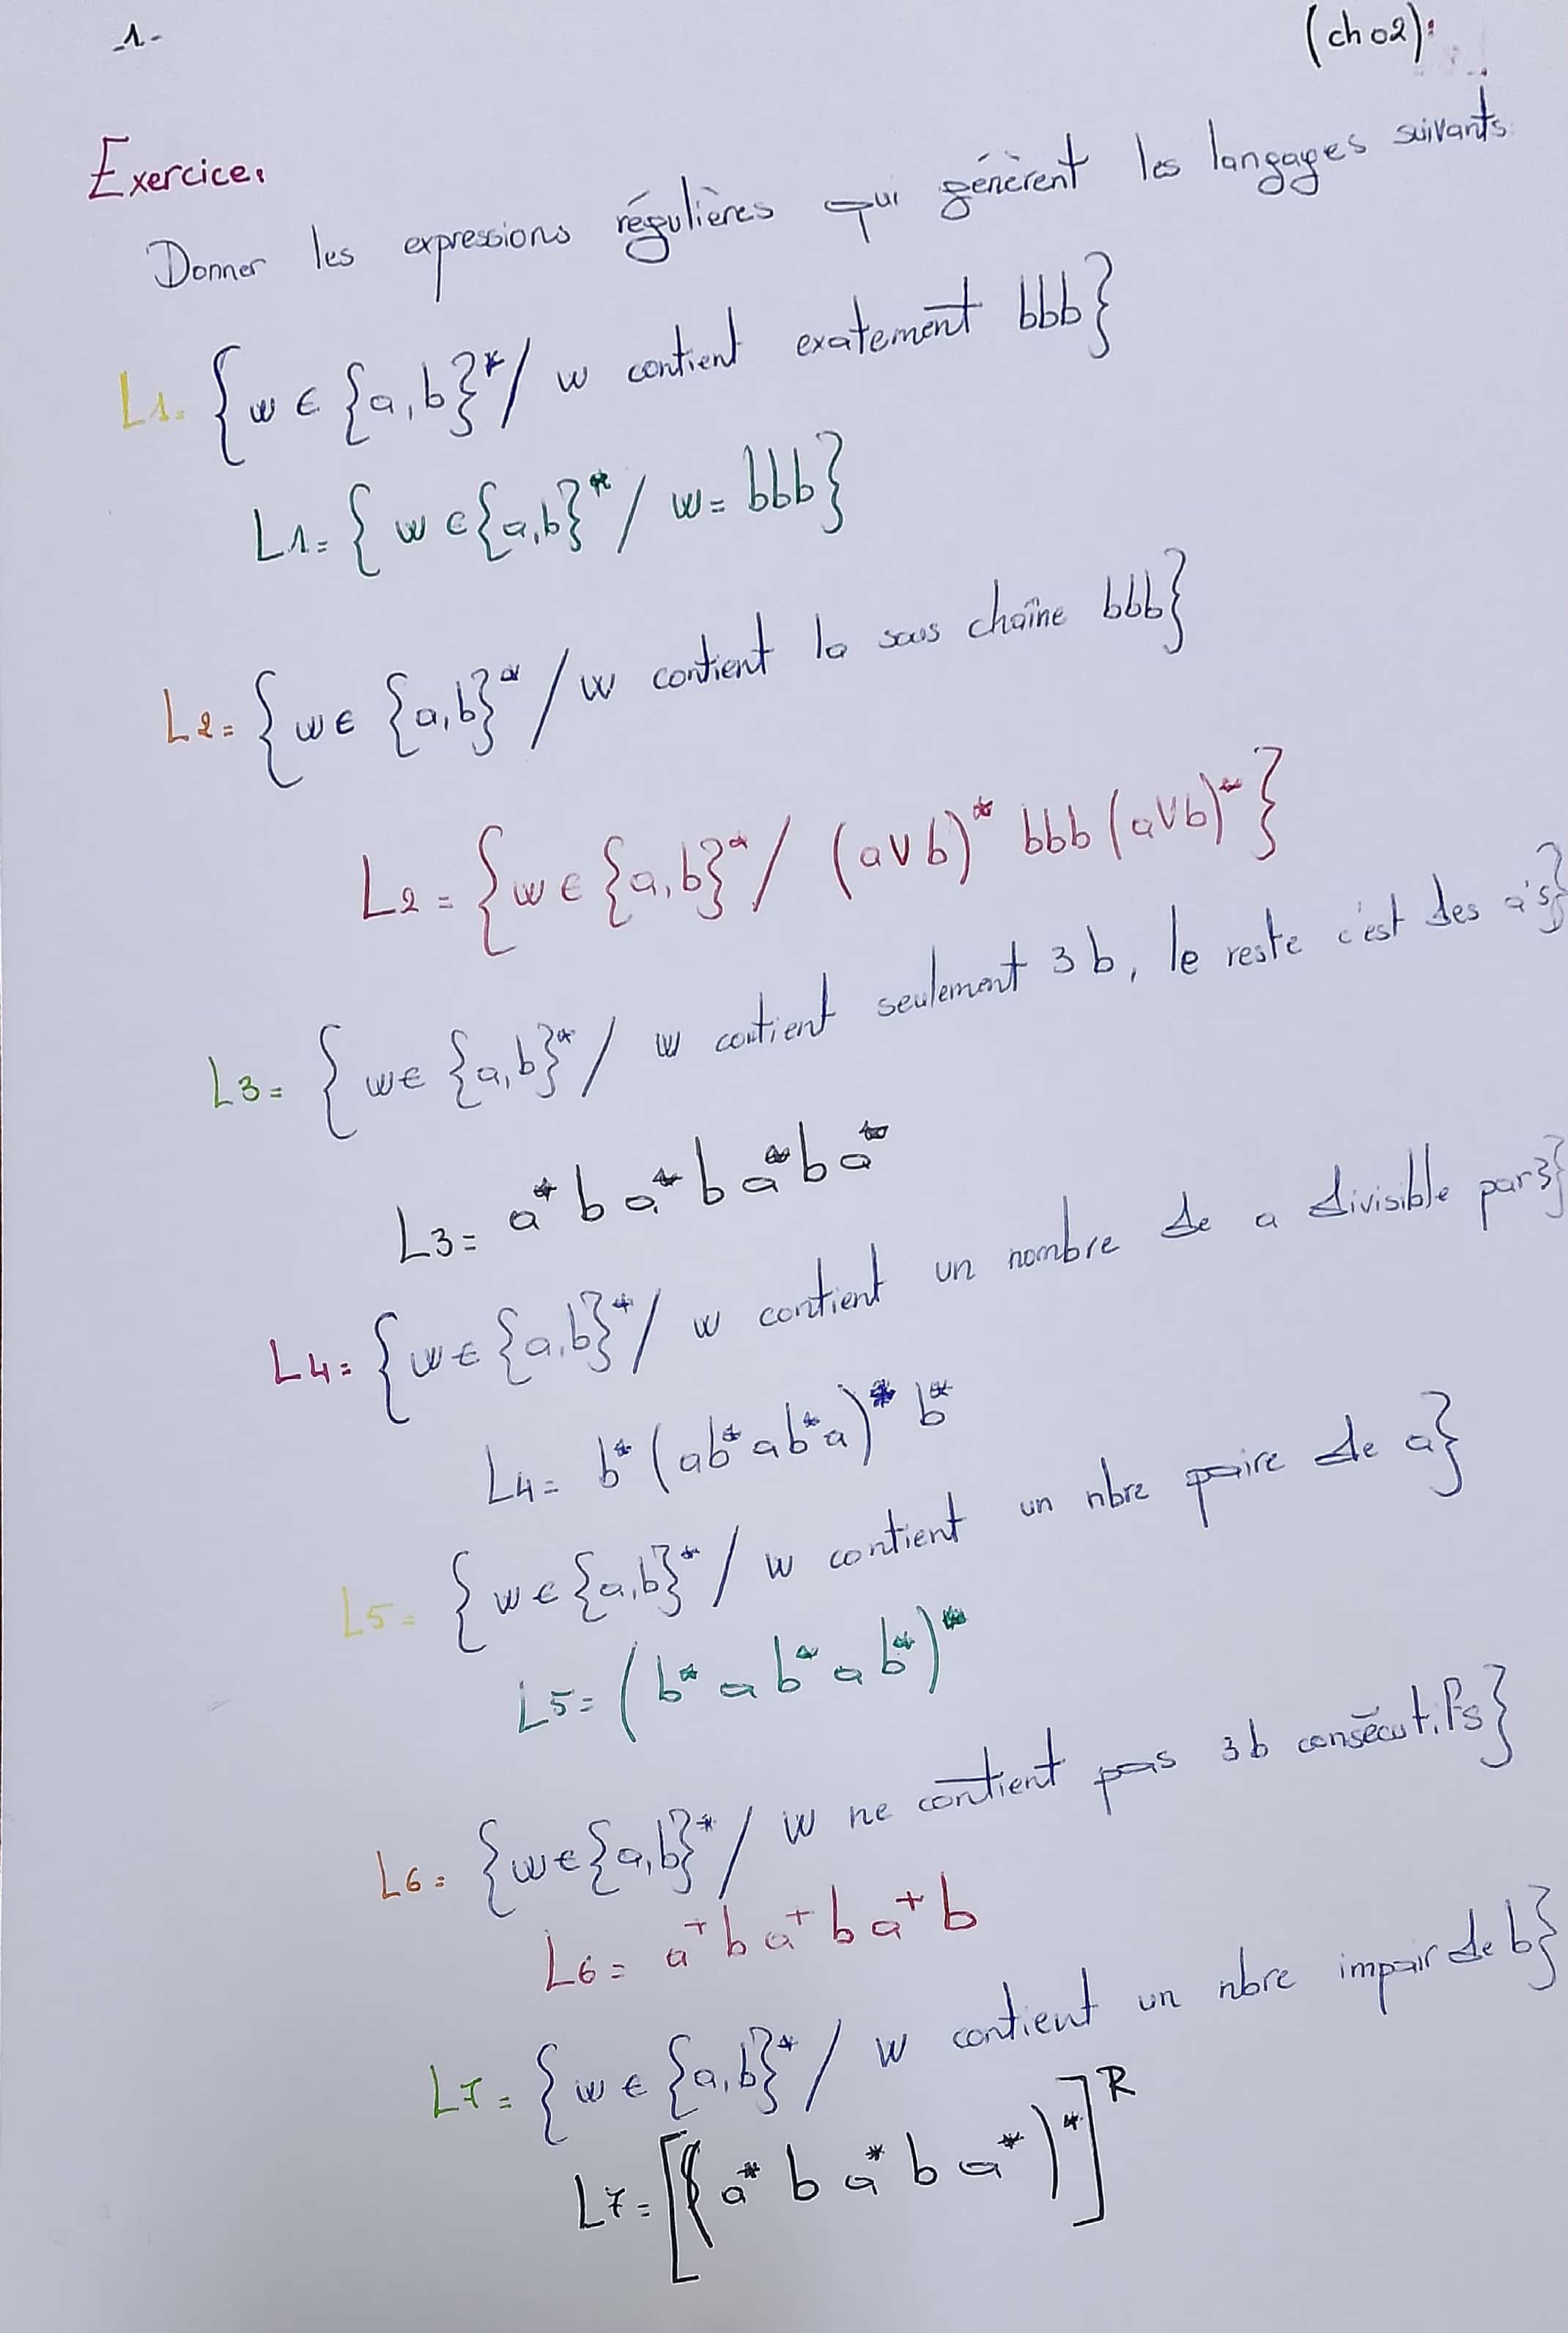 -1-
(ch 02):
Exercice:
Donner les expressions régulières qui génèrent les langages suivants
L1= {w ∈ {a,b}* / w contient exatement bbb}
L1= {w ∈ {a,b}* / w = bbb}
L2= {w ∈ {a,b}* / w contient la sous chaîne bbb}
L2 = {w ∈ {a,b}* / (a∨b)* bbb (a∨b)*}
L3= {w ∈ {a,b}* / w contient seulement 3 b, le reste c'est des a's}
L3= a* b a* b a* b a*
L4= {w ∈ {a,b}* / w contient un nombre de a divisible par 3}
L4= b* (ab* ab* a)* b*
L5= {w ∈ {a,b}* / w contient un nbre paire de a}
L5= (b* a b* a b*)*
L6= {w ∈ {a,b}* / w ne contient pas 3b consécutifs}
L6= a⁺ b a⁺ b a⁺ b
L7= {w ∈ {a,b}* / w contient un nbre impair de b}
L7= [(a* b a* b a*)*]ᴿ